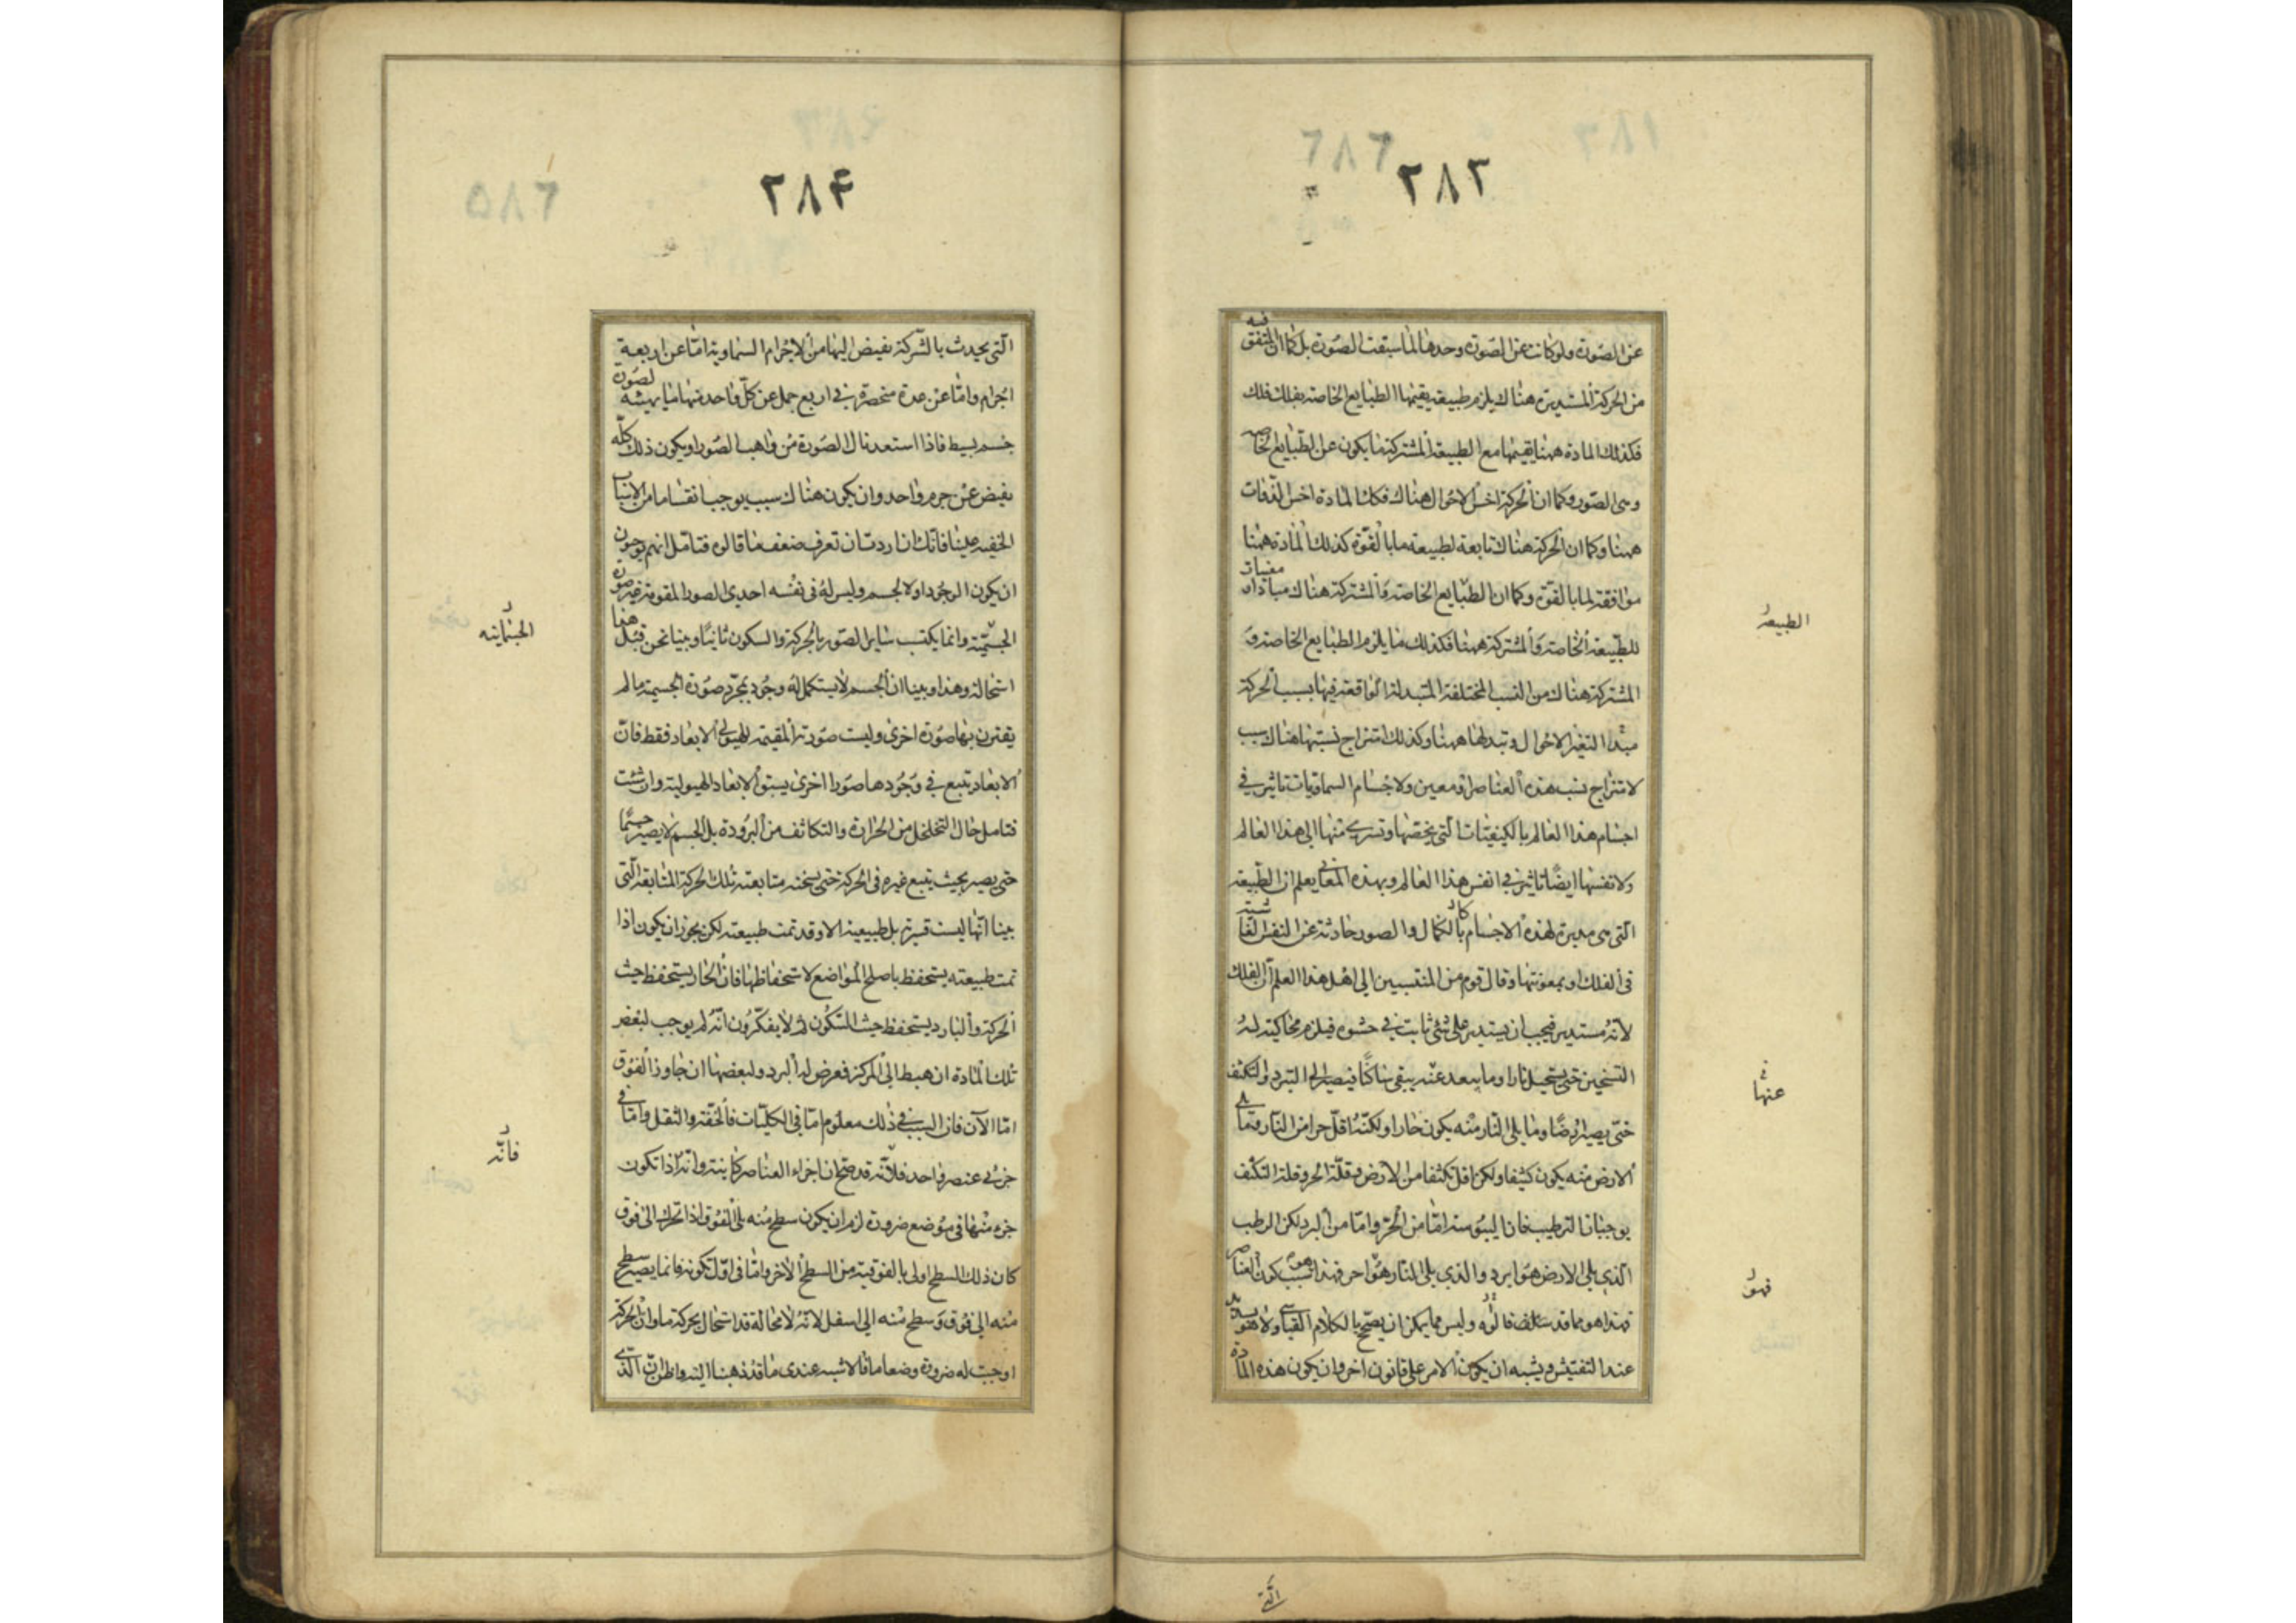 ٢٨٣
عن الصورة ولو كانت عن الصورة وحدها لما سبقت الصورة بل كما ان المتفق فيه
من الحركة المستديرة هناك يلزم طبيعة يقيمها الطبايع الخاصة بفلك فلك
فكذلك المادة ههنا يقيمها مع الطبيعة المشتركة ما يكون عن الطبايع الخاصة
وهي الصور وكما ان الحركة اخس الاحوال هناك فكذلك المادة اخس الذوات
ههنا وكما ان الحركة هناك تابعة لطبيعة ما بالقوة كذلك المادة ههنا
موافقة لما بالقوة وكما ان الطبايع الخاصة والمشتركة هناك مبادى او مغيثات
للطبيعة الخاصة والمشتركة ههنا فكذلك ما يلزم الطبايع الخاصة و
المشتركة هناك من النسب المختلفة المتبدلة الواقعة فيها بسبب الحركة
مبدا التغير الاحوال وتبدلها ههنا وكذلك امتزاج نسبتها هناك سبب
لامتزاج نسب هذه العناصر او معين ولاجسام السماويات تاثير في
اجسام هذا العالم بالكيفيات التي يخصها وتسرى منها الى هذا العالم
ولانفسها ايضا تاثير في انفس هذا العالم وبهذه المعاني يعلم ان الطبيعة
التي هي مدبرة لهذه الاجسام بالكمال والصور حادثة عن النفس الفاشية
في الفلك او بمعونتها وقال قوم من المنتسبين الى اهل هذا العلم ان الفلك
لانه مستدير فيجب ان يستدير على شئ ثابت في حشوه فيلزم محاكيته له
التسخين حتى يستحيل نارا وما يبعد عنه يبقى ساكنا فيصير الى التبرد والتكثف
حتى يصير ارضا وما يلي النار منه يكون حارا ولكنه اقل حرا من النار وما يلي
الارض منه يكون كثيفا ولكن اقل تكثفا من الارض وقلة الحر وقلة التكثف
يوجبان الترطيب فان اليبوسة اما من الحر واما من البرد لكن الرطب
الذي يلي الارض هو ابرد والذي يلي النار هو احر فهذا سبب كون العناصر
فهذا هو مما قد سلف قالوه وليس مما يمكن ان يصح بالكلام القياسي ولا هو بسديد
عند التفتيش ويشبه ان يكون الامر على قانون اخر وان يكون هذه المادة
الطبيعة
عنها
فهو
التي
٢٨۴
التي يحدث بالشركة يفيض اليها من الاجرام السماوية اما عن اربعة
اجرام واما عن عدة منحصرة في اربع جمل عن كل واحد منها ما يهيئه لصورة
جسم بسيط فاذا استعد نال الصورة من واهب الصور او يكون ذلك كله
يفيض عن جرم واحد وان يكون هناك سبب يوجب انقساما من الاسباب
الخفية علينا فانك ان اردت ان تعرف ضعف ما قالوه فتامل انهم يوجبون
ان يكون الوجود اولا لجسم وليس له في نفسه احدى الصور المقومة غير صورة
الجسمية وانما يكتسب ساير الصور بالحركة والسكون ثانيا وبينا نحن قبل هذا
استحالة وهذا وبينا ان الجسم لا يستكمل له وجود بمجرد صورة الجسمية ما لم
يقترن بها صورة اخرى وليست صورته المقيمة للهيولى الابعاد فقط فان
الابعاد يتبع في وجودها صورا اخرى يسبق الابعاد الهيولية وان شئت
فتامل حال التخلخل من الحرارة والتكاثف من البرودة بل الجسم لا يصير جسما
حتى يصير بحيث يتبع غيره في الحركة حتى يسخنه متابعته تلك الحركة المتابعة التي
بينا انها ليست قسرية بل طبيعية الا وقد تمت طبيعته لكن يجوز ان يكون اذا
تمت طبيعته يستحفظ باصلح المواضع لاستحفاظها فان الحار يستحفظ حيث
الحركة والبارد يستحفظ حيث السكون ثم لا يفكرون انه لم يوجب لبعض
تلك المادة ان هبط الى المركز فعرض له البرد ولبعضها ان جاوز الفوق
اما الآن فان السبب في ذلك معلوم اما في الكليات فالخفة والثقل واما في
جزئى عنصر واحد فلانه قد صح ان اجزاء العناصر كاينة وانه اذا تكون
جزء منها في موضع ضرورة لزم ان يكون سطح منه يلي الفوق اذا تحرك الى فوق
كان ذلك السطح اولى بالفوقية من السطح الآخر واما في اول تكونه فانما يصير سطح
منه الى فوق وسطح منه الى اسفل لانه لا محالة قد استحال بحركة ما وان الحركة
اوجبت له ضرورة وضعا ما فالاشبه عندى ما قد ذهبنا اليه واظن ان الذى
الجسمانية
فانه